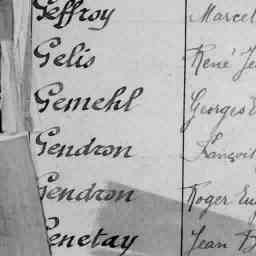 Geffroy Marcel
Gelis René Je
Gemehl Georges E
Gendron François
Gendron Roger Eug
Genetay Jean B